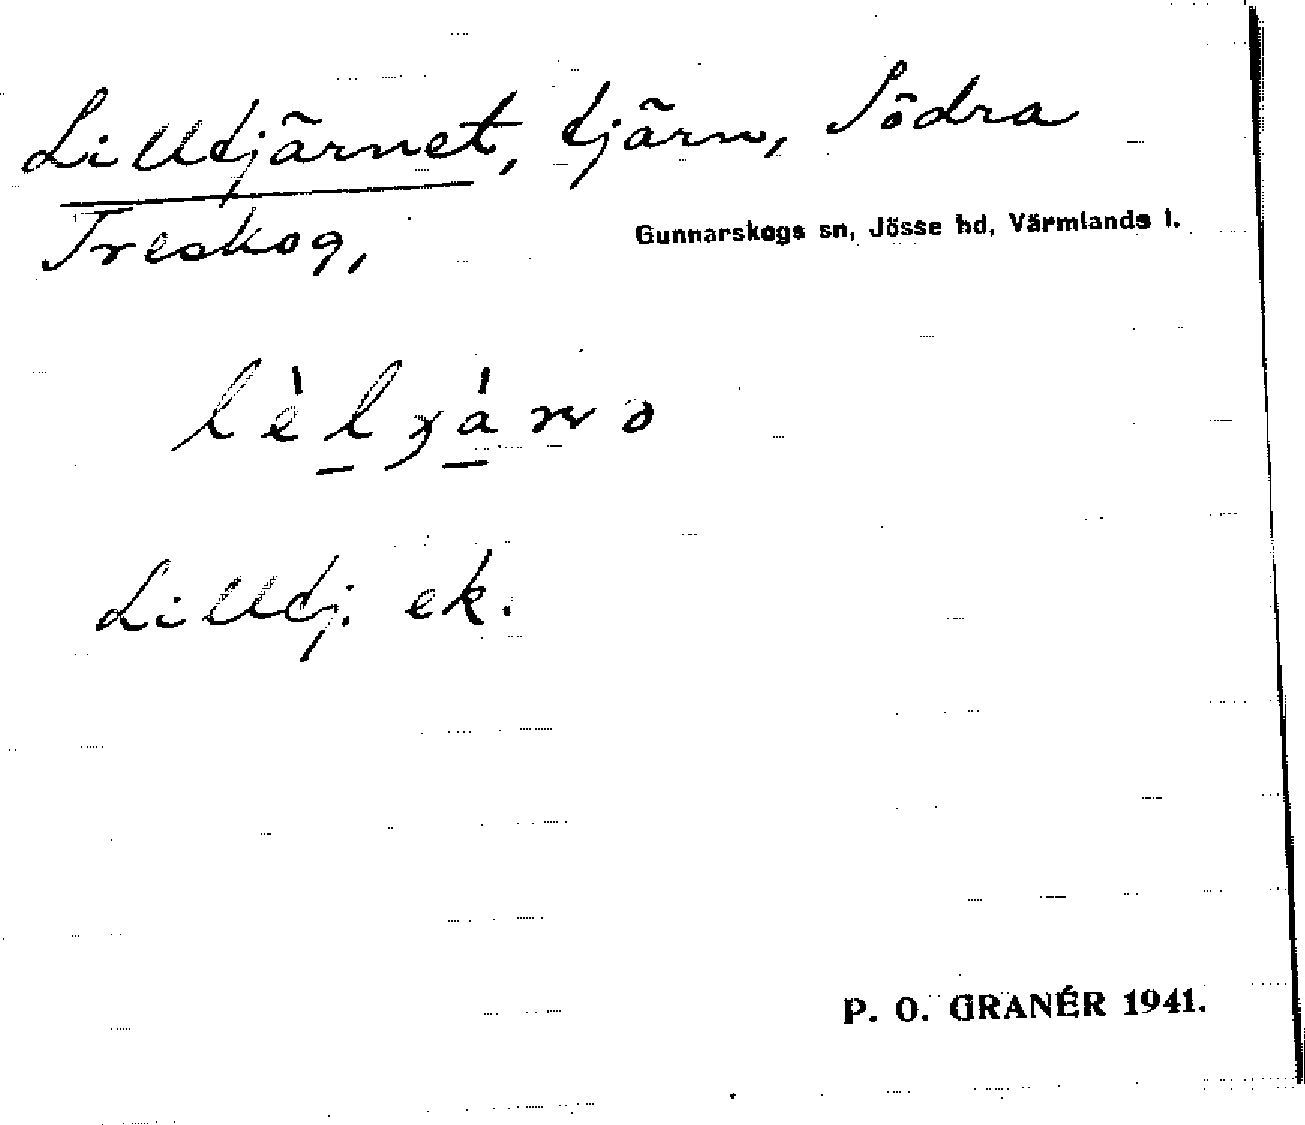 Lilltjärnet, tjärn, Södra
Treskog,
Gunnarskogs sn, Jösse hd, Värmlands l.
Lilltj. ek.
P. O. GRANÉR 1941.